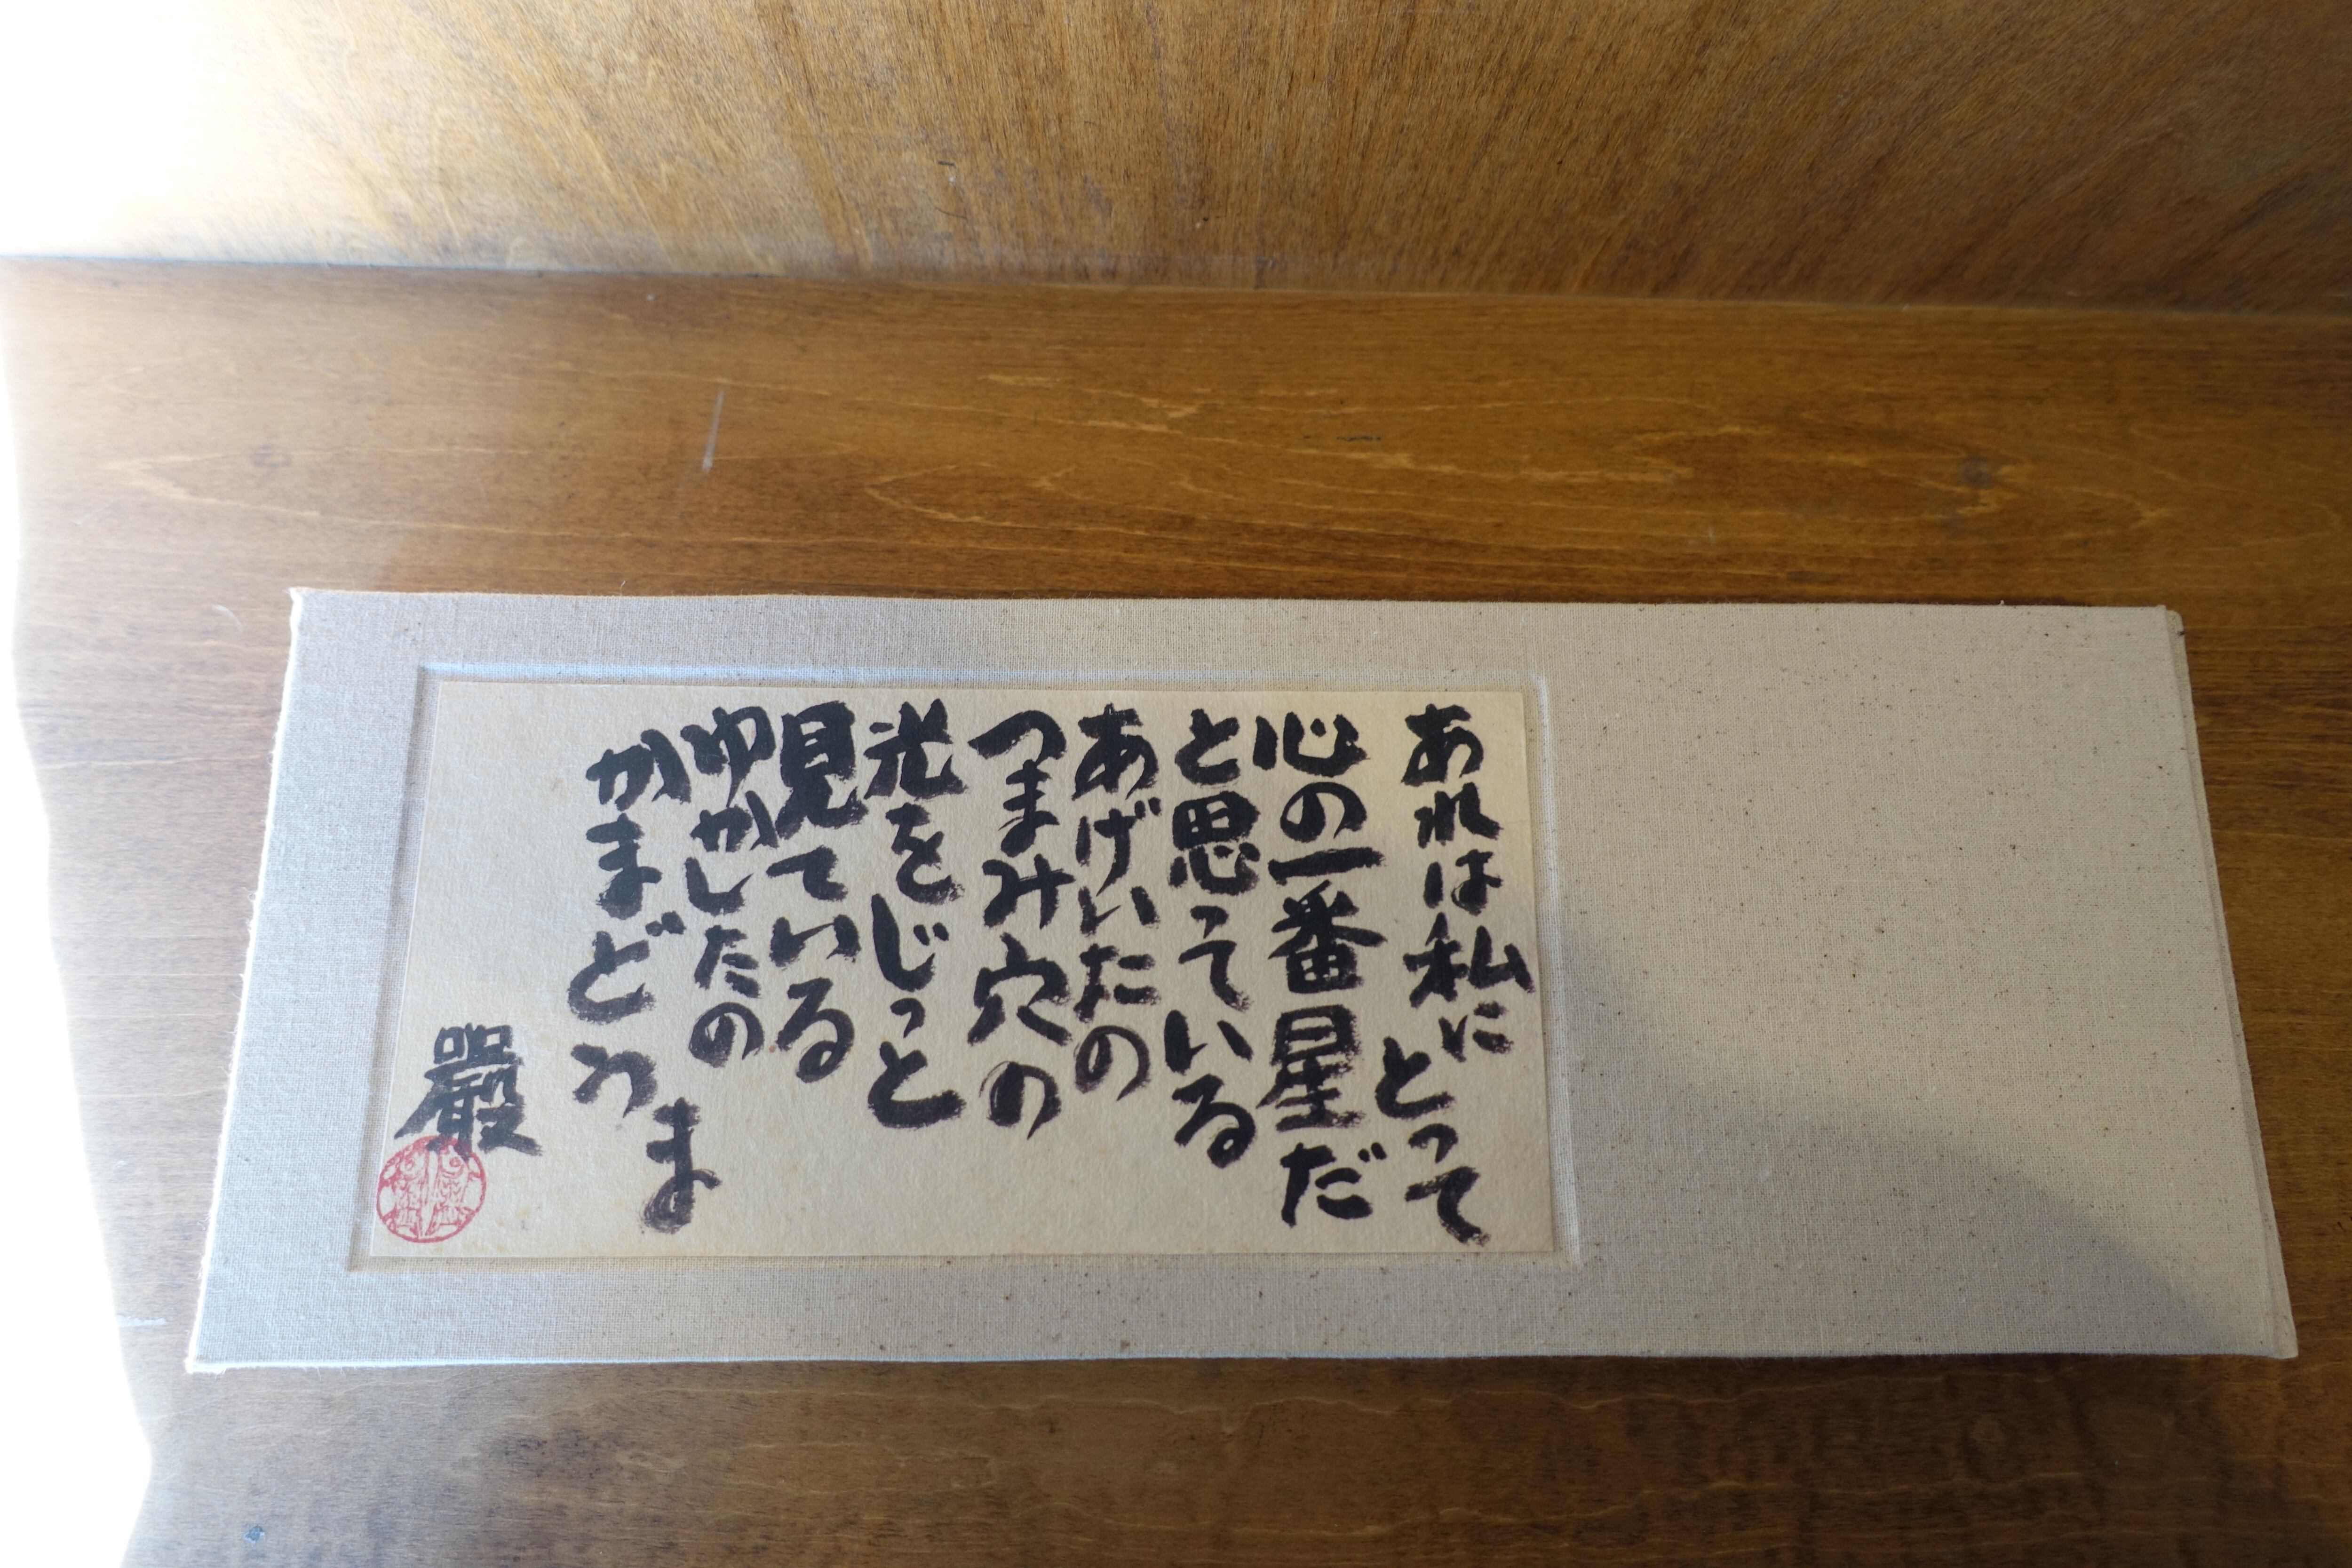 あれは私にとって
心の一番星だ
と思っている
あげいたの
つまみ穴の
光をじっと
見ている
ゆかしたの
かまどうま
嚴